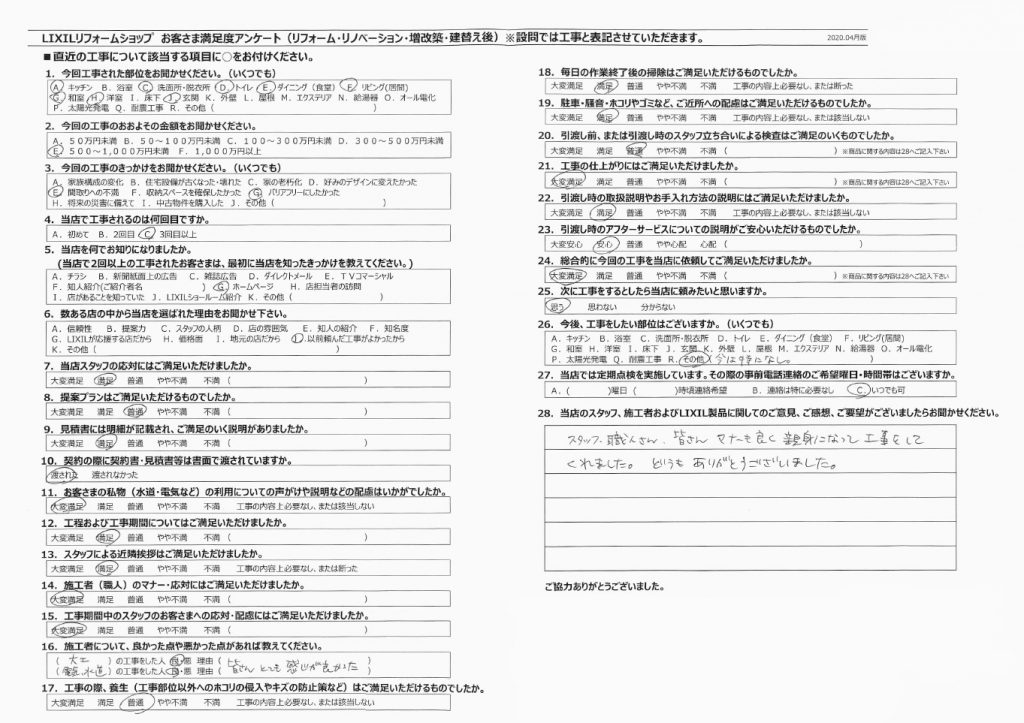 LIXILリフォームショップ お客さま満足度アンケート（リフォーム・リノベーション・増改築・建替え後）※設問では工事と表記させていただきます。
2020.04月版
■直近の工事について該当する項目に○をお付けください。
1．今回工事された部位をお聞かせください。（いくつでも）
A．キッチン B．浴室 C．洗面所・脱衣所 D．トイレ E．ダイニング（食堂） F．リビング(居間)
G．和室 H．洋室 I．床下 J．玄関 K．外壁 L．屋根 M．エクステリア N．給湯器 O．オール電化
P．太陽光発電 Q．耐震工事 R．その他（ ）
2．今回の工事のおおよその金額をお聞かせください。
A．50万円未満 B．50～100万円未満 C．100～300万円未満 D．300～500万円未満
E．500～1,000万円未満 F．1,000万円以上
3．今回の工事のきっかけをお聞かせください。（いくつでも）
A．家族構成の変化 B．住宅設備が古くなった・壊れた C．家の老朽化 D．好みのデザインに変えたかった
E．間取りへの不満 F．収納スペースを確保したかった G．バリアフリーにしたかった
H．将来の災害に備えて I．中古物件を購入した J．その他（ ）
4．当店で工事されるのは何回目ですか。
A．初めて B．2回目 C．3回目以上
5．当店を何でお知りになりましたか。
(当店で2回以上の工事されたお客さまは、最初に当店を知ったきっかけを教えてください。)
A．チラシ B．新聞紙面上の広告 C．雑誌広告 D．ダイレクトメール E．TVコマーシャル
F．知人紹介(ご紹介者名 ) G．ホームページ H．店担当者の訪問
I．店があることを知っていた J．LIXILショールーム紹介 K．その他（ ）
6．数ある店の中から当店を選ばれた理由をお聞かせ下さい。
A．信頼性 B．提案力 C．スタッフの人柄 D．店の雰囲気 E．知人の紹介 F．知名度
G．LIXILが応援する店だから H．価格面 I．地元の店だから J．以前頼んだ工事がよかったから
K．その他（ ）
7．当店スタッフの応対にはご満足いただけましたか。
大変満足 満足 普通 やや不満 不満（ ）
8．提案プランはご満足いただけるものでしたか。
大変満足 満足 普通 やや不満 不満（ ）
9．見積書には明細が記載され、ご満足のいく説明がありましたか。
大変満足 満足 普通 やや不満 不満（ ）
10．契約の際に契約書・見積書等は書面で渡されていますか。
渡された 渡されなかった
11．お客さまの私物（水道・電気など）の利用についての声がけや説明などの配慮はいかがでしたか。
大変満足 満足 普通 やや不満 不満 工事の内容上必要なし、または該当しない
12．工程および工事期間についてはご満足いただけましたか。
大変満足 満足 普通 やや不満 不満（ ）
13．スタッフによる近隣挨拶はご満足いただけましたか。
大変満足 満足 普通 やや不満 不満 工事の内容上必要なし、または断った
14．施工者（職人）のマナー・応対にはご満足いただけましたか。
大変満足 満足 普通 やや不満 不満（ ）
15．工事期間中のスタッフのお客さまへの応対・配慮にはご満足いただけましたか。
大変満足 満足 普通 やや不満 不満（ ）
16．施工者について、良かった点や悪かった点があれば教えてください。
（ 大工 ）の工事をした人 良・悪 理由（ 皆さん とても 感じが良かった ）
（ 電気、水道 ）の工事をした人 良・悪 理由（ ）
17．工事の際、養生（工事部位以外へのホコリの侵入やキズの防止策など）はご満足いただけるものでしたか。
大変満足 満足 普通 やや不満 不満 工事の内容上必要なし、または該当しない
18．毎日の作業終了後の掃除はご満足いただけるものでしたか。
大変満足 満足 普通 やや不満 不満 工事の内容上必要なし、または断った
19．駐車・騒音・ホコリやゴミなど、ご近所への配慮はご満足いただけるものでしたか。
大変満足 満足 普通 やや不満 不満 工事の内容上必要なし、または該当しない
20．引渡し前、または引渡し時のスタッフ立ち合いによる検査はご満足のいくものでしたか。
大変満足 満足 普通 やや不満 不満（ ）※商品に関する内容は28へご記入下さい
21．工事の仕上がりにはご満足いただけましたか。
大変満足 満足 普通 やや不満 不満（ ）※商品に関する内容は28へご記入下さい
22．引渡し時の取扱説明やお手入れ方法の説明にはご満足いただけましたか。
大変満足 満足 普通 やや不満 不満 工事の内容上必要なし、または該当しない
23．引渡し時のアフターサービスについての説明がご安心いただけるものでしたか。
大変安心 安心 普通 やや心配 心配（ ）
24．総合的に今回の工事を当店に依頼してご満足いただけましたか。
大変満足 満足 普通 やや不満 不満（ ）※商品に関する内容は28へご記入下さい
25．次に工事をするとしたら当店に頼みたいと思いますか。
思う 思わない 分からない
26．今後、工事をしたい部位はございますか。（いくつでも）
A．キッチン B．浴室 C．洗面所・脱衣所 D．トイレ E．ダイニング（食堂） F．リビング(居間)
G．和室 H．洋室 I．床下 J．玄関 K．外壁 L．屋根 M．エクステリア N．給湯器 O．オール電化
P．太陽光発電 Q．耐震工事 R．その他（ 今は特になし。 ）
27．当店では定期点検を実施しています。その際の事前電話連絡のご希望曜日・時間帯はございますか。
A．（ ）曜日（ ）時頃連絡希望 B．連絡は特に必要なし C．いつでも可
28．当店のスタッフ、施工者およびLIXIL製品に関してのご意見、ご感想、ご要望がございましたらお聞かせください。
スタッフ、職人さん、皆さん マナーも良く 親身になって 工事をして
くれました。 どうも ありがとうございました。
ご協力ありがとうございました。